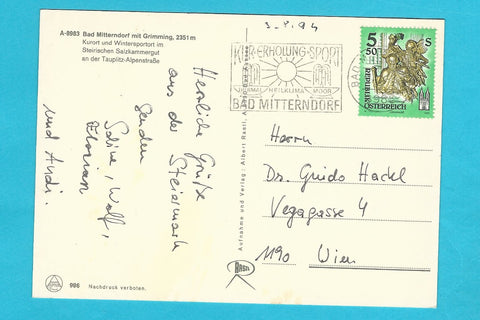 A-8983 Bad Mitterndorf mit Grimming, 2351 m
Kurort und Wintersportort im
Steirischen Salzkammergut
an der Tauplitz-Alpenstraße
Herzliche Grüße
aus der Steiermark
senden
Sabine, Wolf,
Florian
und Andi.
986 Nachdruck verboten.
Aufnahme und Verlag: Albert Rastl,
RASTL
3.8.94
KUR-ERHOLUNG-SPORT
THERMAL HEILKLIMA MOOR
BAD MITTERNDORF
BAD
5 50 S
REPUBLIK
ÖSTERREICH
Herrn
Dr. Guido Hackl
Vegagasse 4
1190 Wien